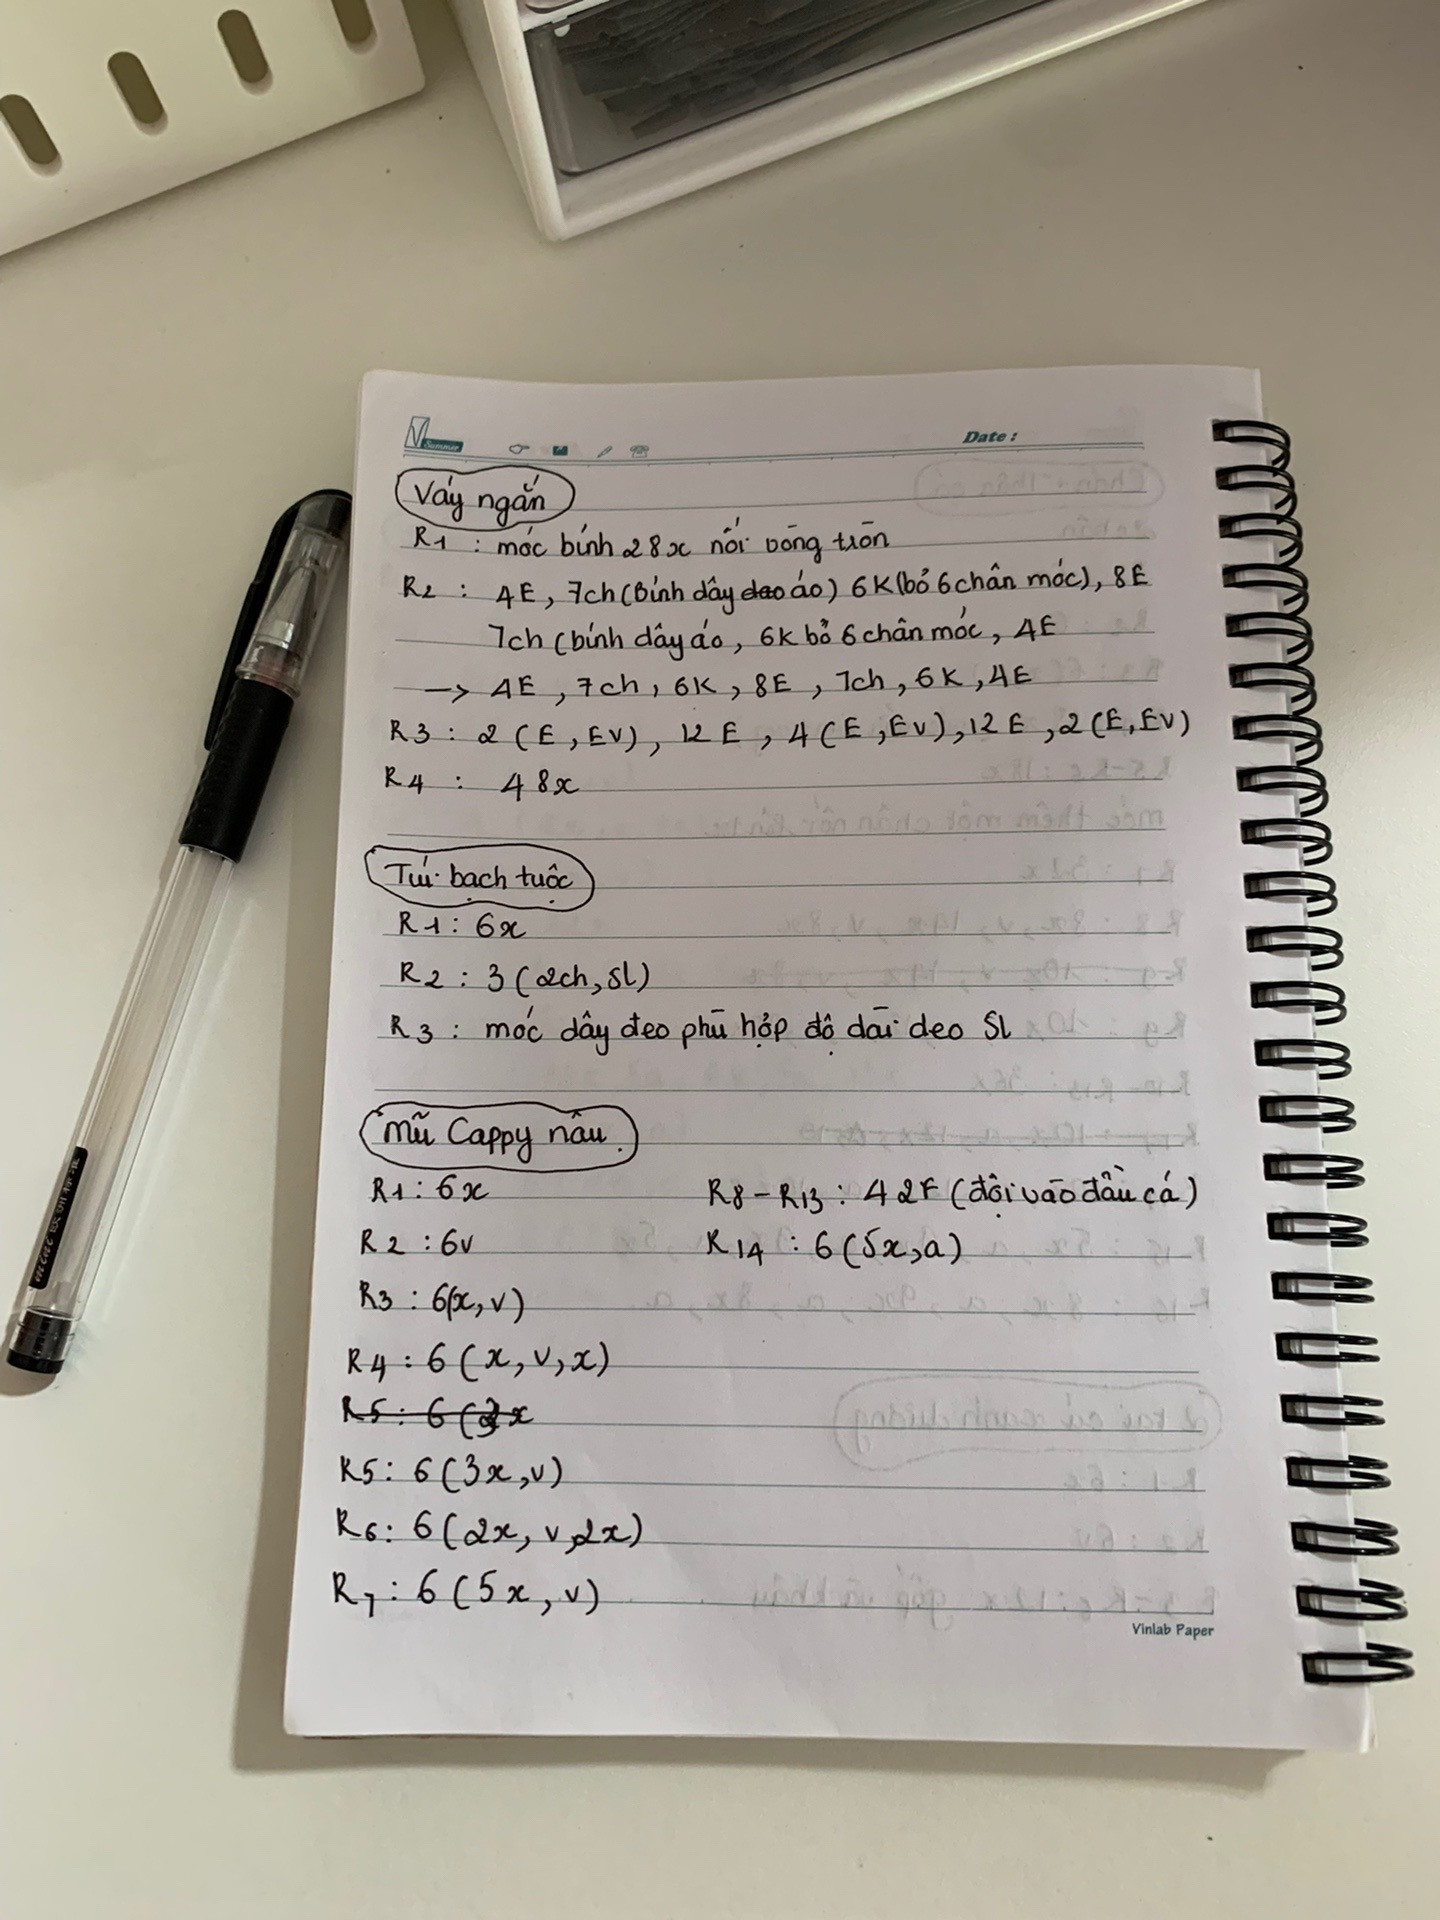 Summer
Date :
Váy ngắn
R1 : móc bính 28x nối vòng tròn
R2 : 4E, 7ch (Bính dây đeo áo) 6K (bỏ 6 chân móc), 8E
7ch (bính dây áo, 6K bỏ 6 chân móc, 4E
→ 4E, 7ch, 6K, 8E, 7ch, 6K, 4E
R3 : 2 (E, EV), 12 E, 4 (E, EV), 12 E, 2 (E, EV)
R4 : 48x
Túi bạch tuộc
R1 : 6x
R2 : 3 (2ch, Sl)
R3 : móc dây đeo phù hợp độ dài đeo SL
Mũ Cappy nâu
R1 : 6x
R2 : 6v
R3 : 6(x, v)
R4 : 6 (x, v, x)
R5 : 6 (3x
R5 : 6 (3x, v)
R6 : 6 (2x, v, 2x)
R7 : 6 (5x, v)
R8 - R13 : 42F (đội vào đầu cá)
R14 : 6 (5x, a)
Vinlab Paper